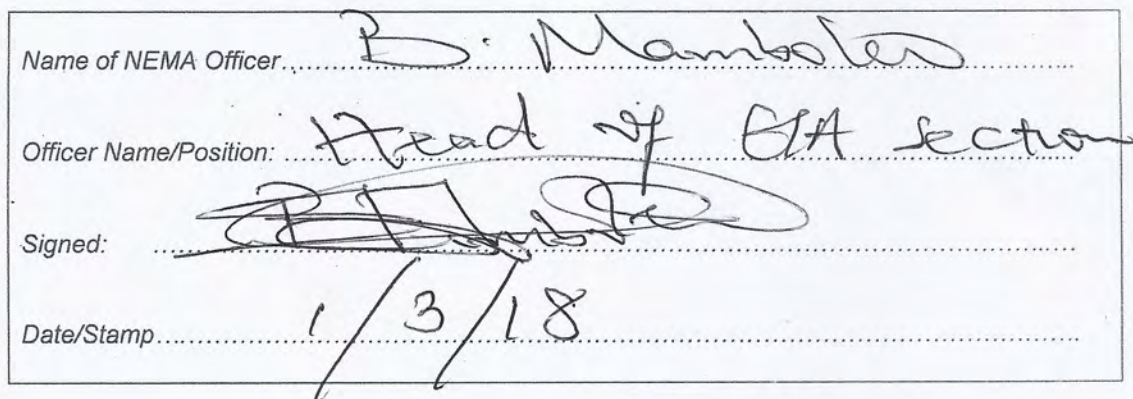 Name of NEMA Officer.... B. Mamboleo
Officer Name/Position: .... Head of EIA section
Signed: ....
Date/Stamp.... 1/3/18